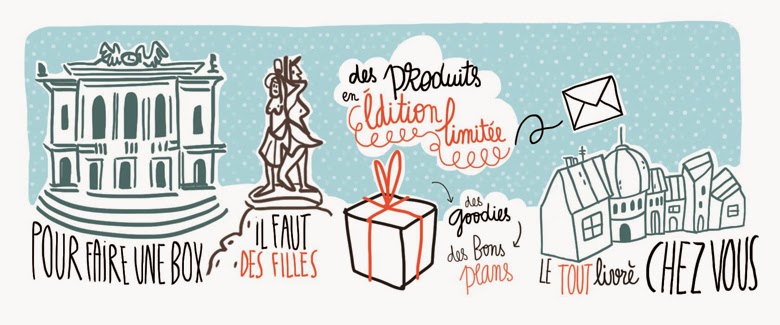 POUR FAIRE UNE BOX
iL FAUT
DES FILLES
des PRoduits
en Édition
limitée
des
goodies
des Bons
plans
LE TOUT livrè CHEZ VOUS